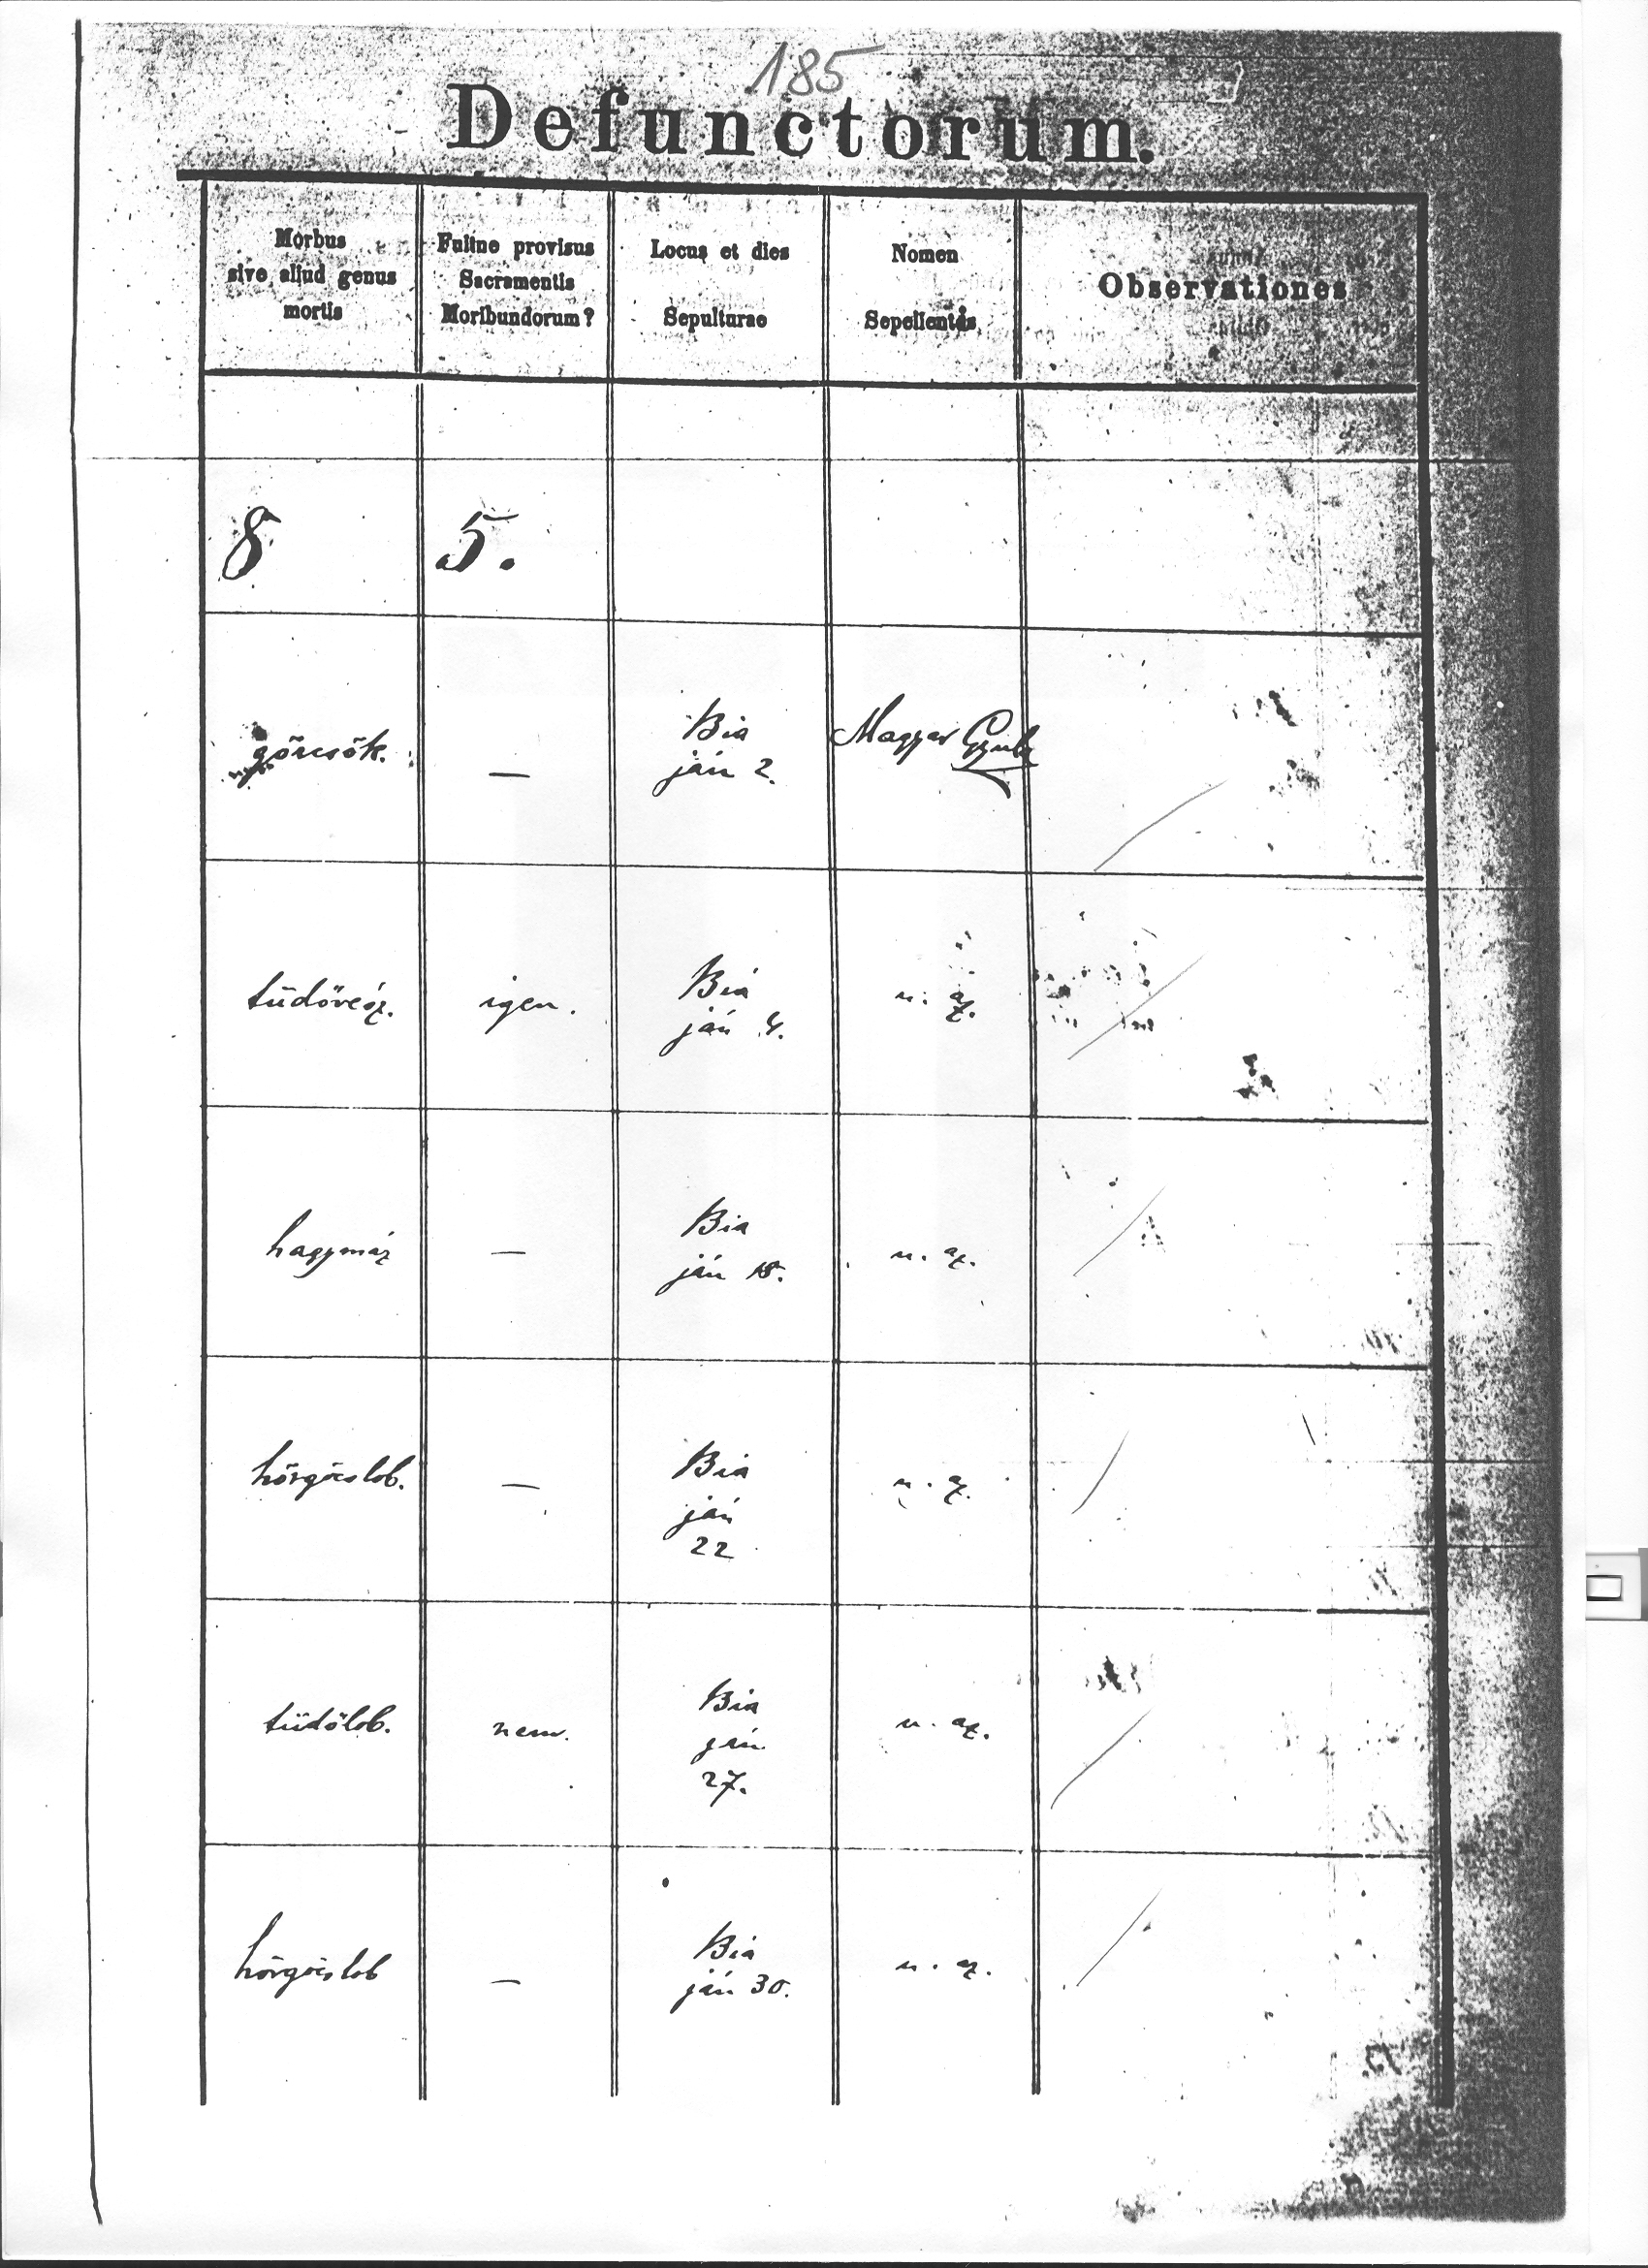 185
Defunctorum.
Morbus
sive aliud genus
mortis
Fuitne provisus
Sacramentis
Moribundorum?
Locus et dies
Sepulturae
Nomen
Sepelientis
Observationes
8 5.
görcsök. — Bia
ján 2. Magyar Gyula
tüdővész. igen. Bia
ján 4. u. az.
hagymáz — Bia
ján 18. u. az.
hörgőcslob. — Bia
ján
22 u. az.
tüdőlob. nem. Bia
ján
27. u. az.
hörgőcslob — Bia
ján 30. u. az.